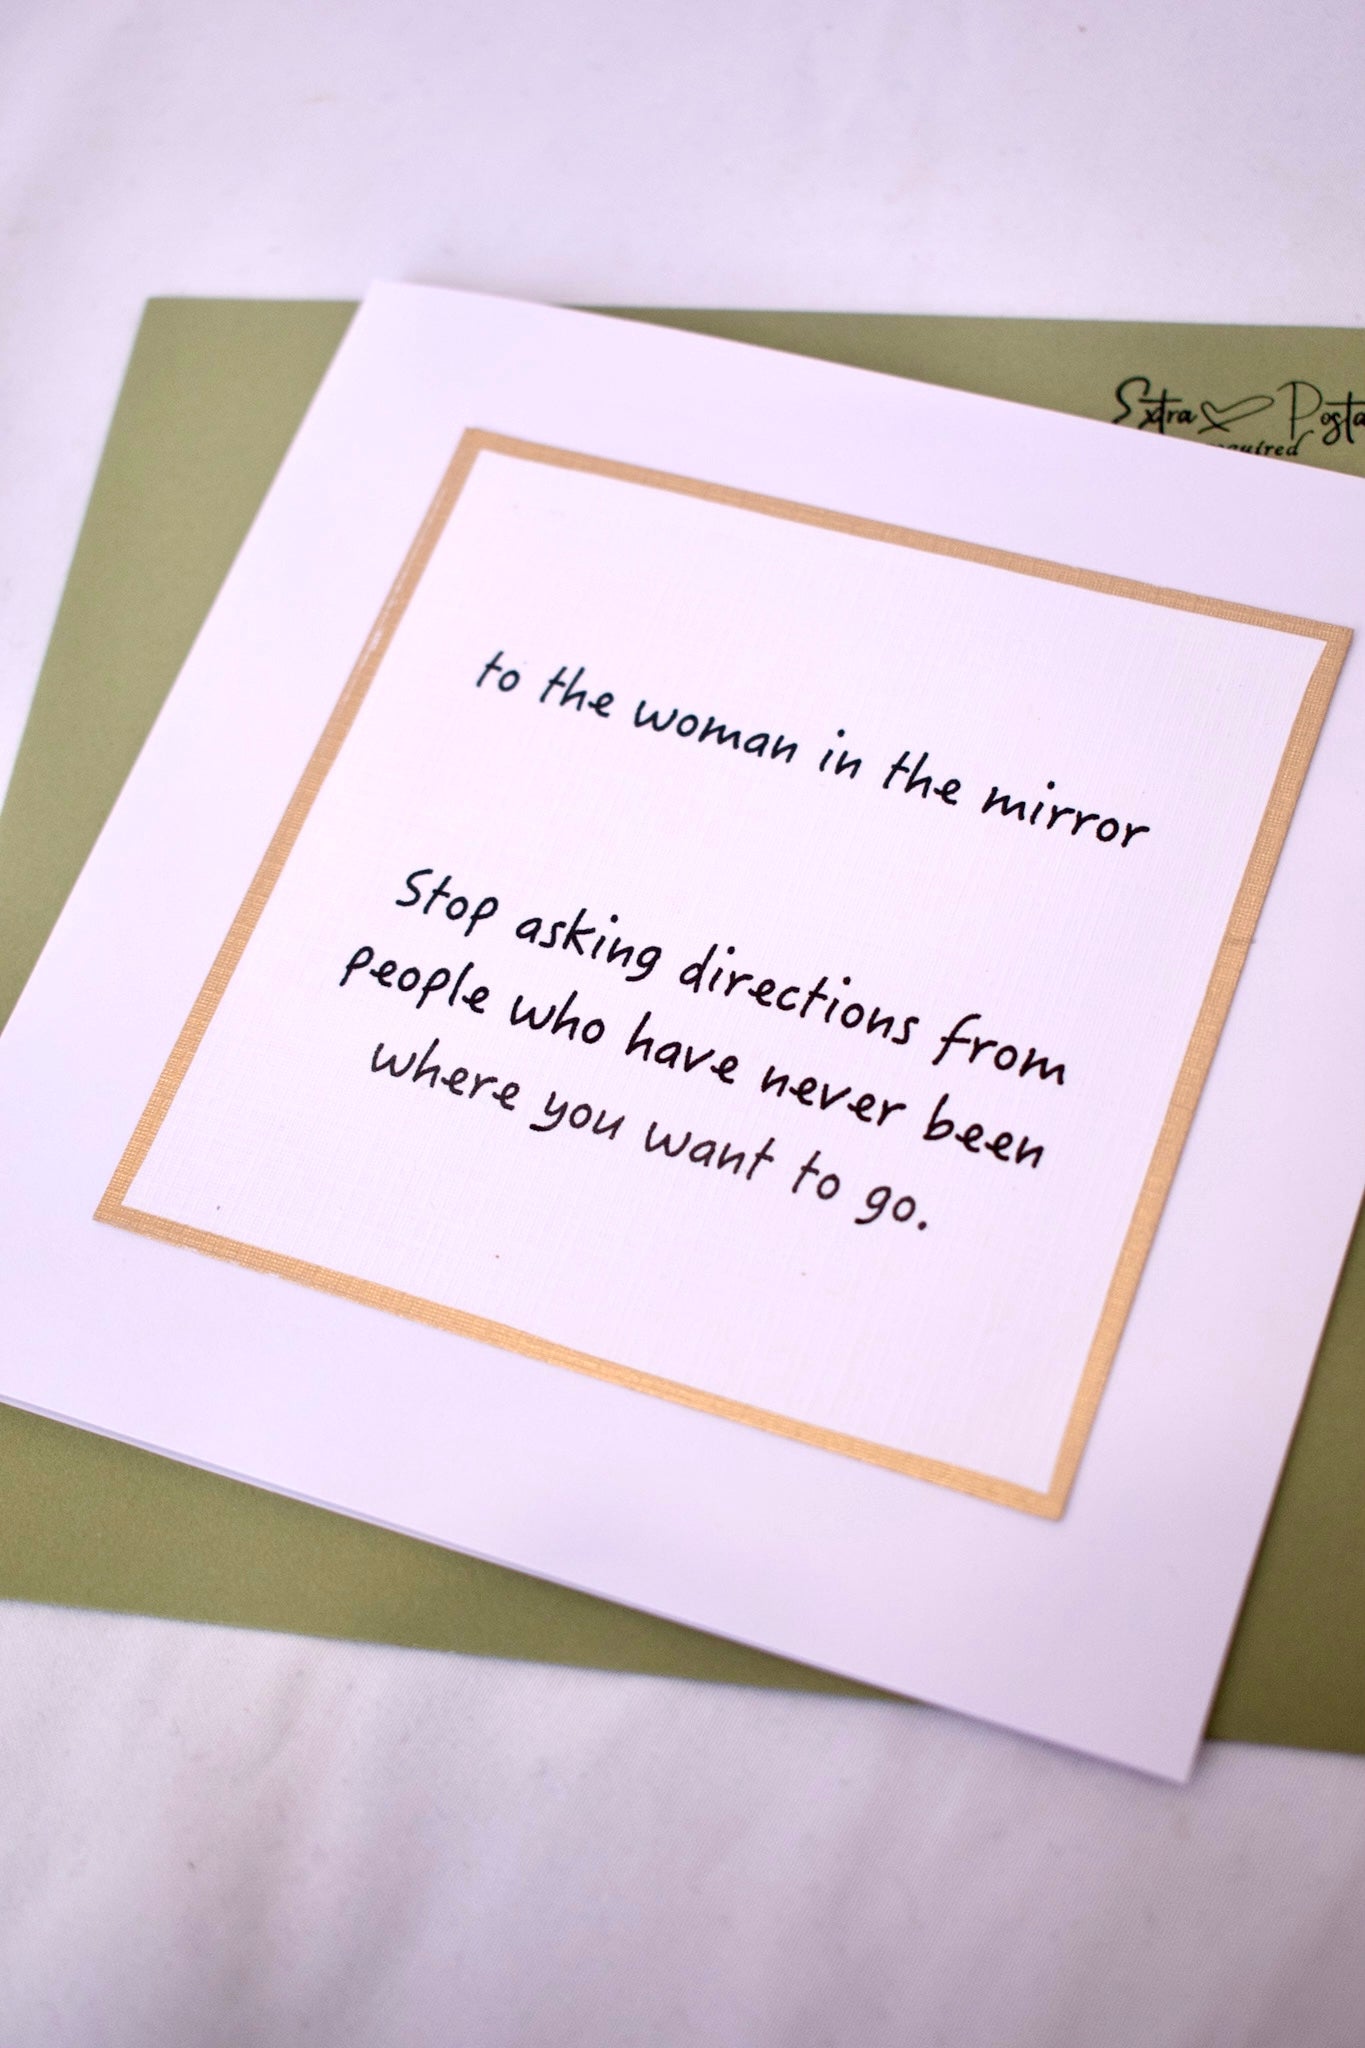 Extra Posta
to the woman in the mirror
Stop asking directions from
people who have never been
where you want to go.